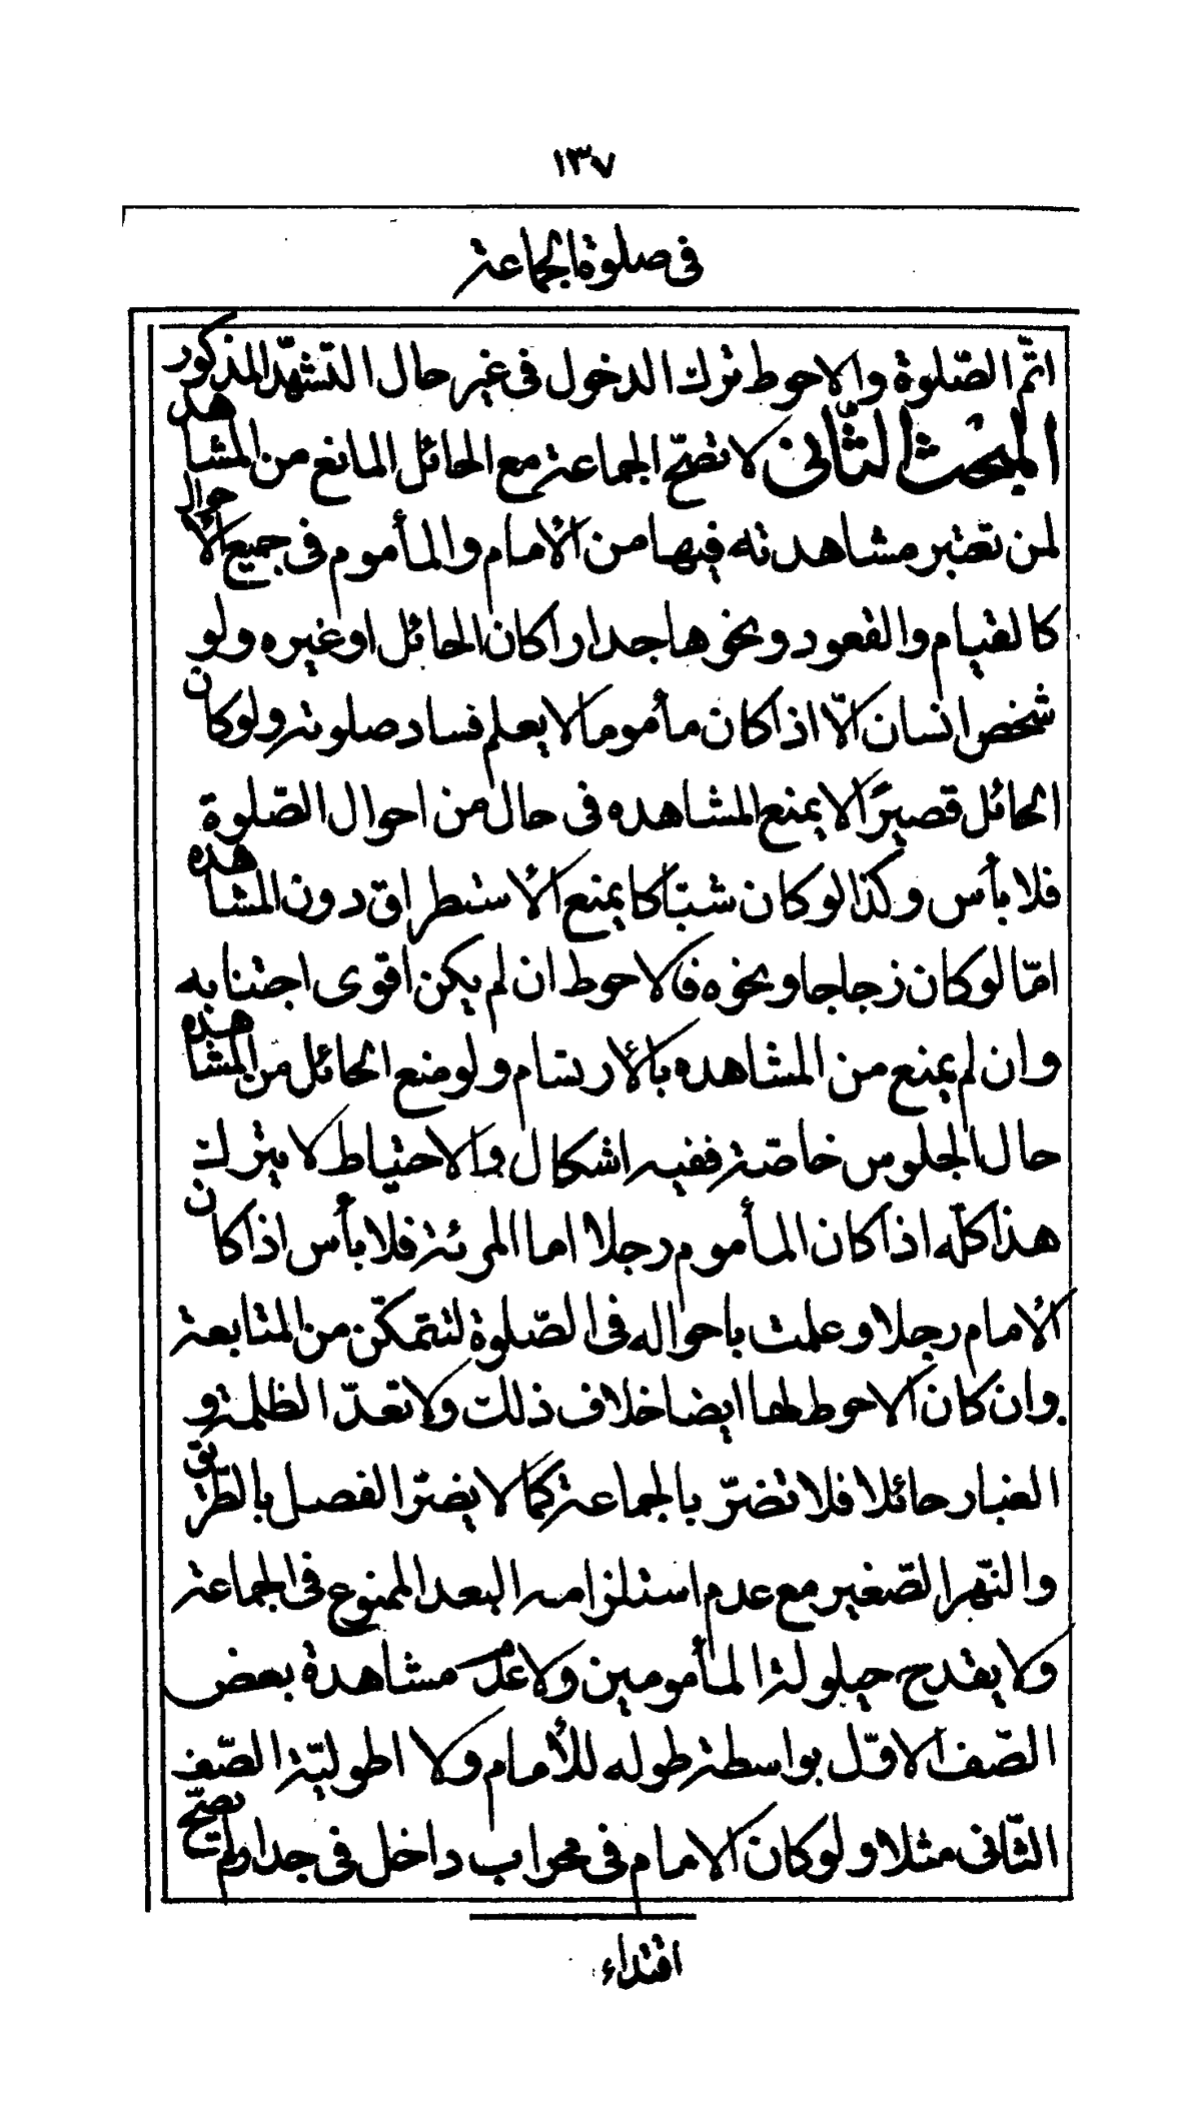 ١٣٧
فى صلوة الجماعة
اتمّ الصّلوة والاحوط ترك الدخول فى غير حال التشهّد المذكور
المبحث الثّانى لا تصحّ الجماعة مع الحائل المانع من المشاهدة
لمن تعتبر مشاهدته فيها من الأمام والمأموم فى جميع الأحوال
كالقيام والقعود ونحوها جدارا كان الحائل او غيره ولو
شخص انسان الّا اذا كان مأموما لا يعلم فساد صلوته ولو كان
الحائل قصيرًا لا يمنع المشاهده فى حال من احوال الصّلوة
فلا بأس وكذا لو كان شبّاكا يمنع الأستطراق دون المشاهده
امّا لو كان زجاجا ونحوه فالاحوط ان لم يكن اقوى اجتنابه
وان لم يمنع من المشاهده بالأرتسام ولو منع الحائل من المشاهده
حال الجلوس خاصّة ففيه اشكال والاحتياط لا يترك
هذا كلّه اذا كان المأموم رجلا اما المرئة فلا بأس اذا كان
الأمام رجلا وعلمت باحواله فى الصّلوة لتتمكّن من المتابعة
وان كان الاحوط لها ايضا خلاف ذلك ولا تعدّ الظلمة و
الغبار حائلا فلا تضرّ بالجماعة كما لا يضرّ الفصل بالطّريق
والنّهر الصّغير مع عدم استلزامه البعد الممنوع فى الجماعة
ولا يقدح حيلولة المأمومين ولا عدم مشاهدة بعض
الصّف الاوّل بواسطة طوله للأمام ولا اطوليّة الصّف
الثّانى مثلا ولو كان الامام فى محراب داخل فى جدار لم تصحّ
اقتداء